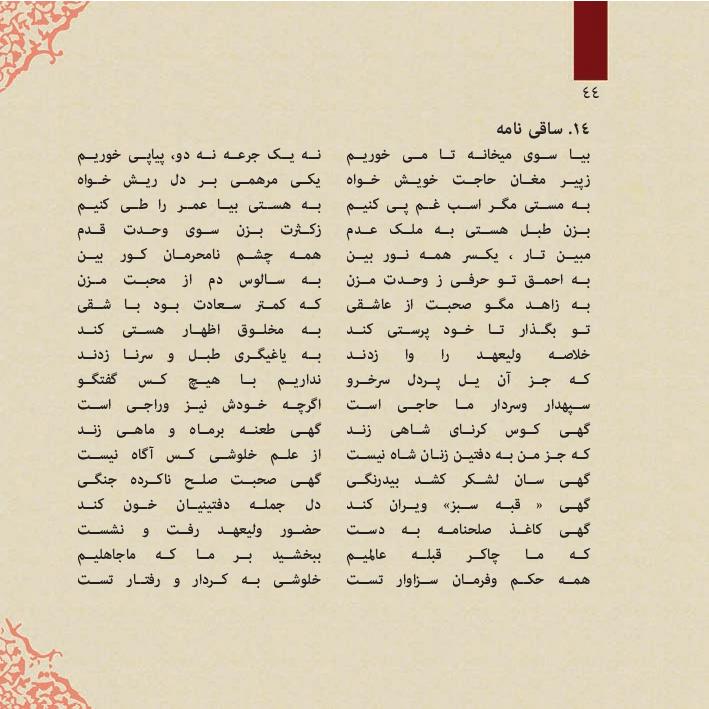 ٤٤
١٤. ساقی نامه
بیا سوی میخانه تا می خوریم نه یک جرعه نه دو، پیاپی خوریم
زپیر مغان حاجت خویش خواه یکی مرهمی بر دل ریش خواه
به مستی مگر اسب غم پی کنیم به هستی بیا عمر را طی کنیم
بزن طبل هستی به ملک عدم زکثرت بزن سوی وحدت قدم
مبین تار ، یکسر همه نور بین همه چشم نامحرمان کور بین
به احمق تو حرفی ز وحدت مزن به سالوس دم از محبت مزن
به زاهد مگو صحبت از عاشقی که کمتر سعادت بود با شقی
تو بگذار تا خود پرستی کند به مخلوق اظهار هستی کند
خلاصه ولیعهد را وا زدند به یاغیگری طبل و سرنا زدند
که جز آن یل پردل سرخرو نداریم با هیچ کس گفتگو
سپهدار وسردار ما حاجی است اگرچه خودش نیز وراجی است
گهی کوس کرنای شاهی زند گهی طعنه برماه و ماهی زند
که جز من به دفتین زنان شاه نیست از علم خلوشی کس آگاه نیست
گهی سان لشکر کشد بیدرنگی گهی صحبت صلح ناکرده جنگی
گهی « قبه سبز» ویران کند دل جمله دفتینیان خون کند
گهی کاغذ صلحنامه به دست حضور ولیعهد رفت و نشست
که ما چاکر قبله عالمیم ببخشید بر ما که ماجاهلیم
همه حکم وفرمان سزاوار تست خلوشی به کردار و رفتار تست